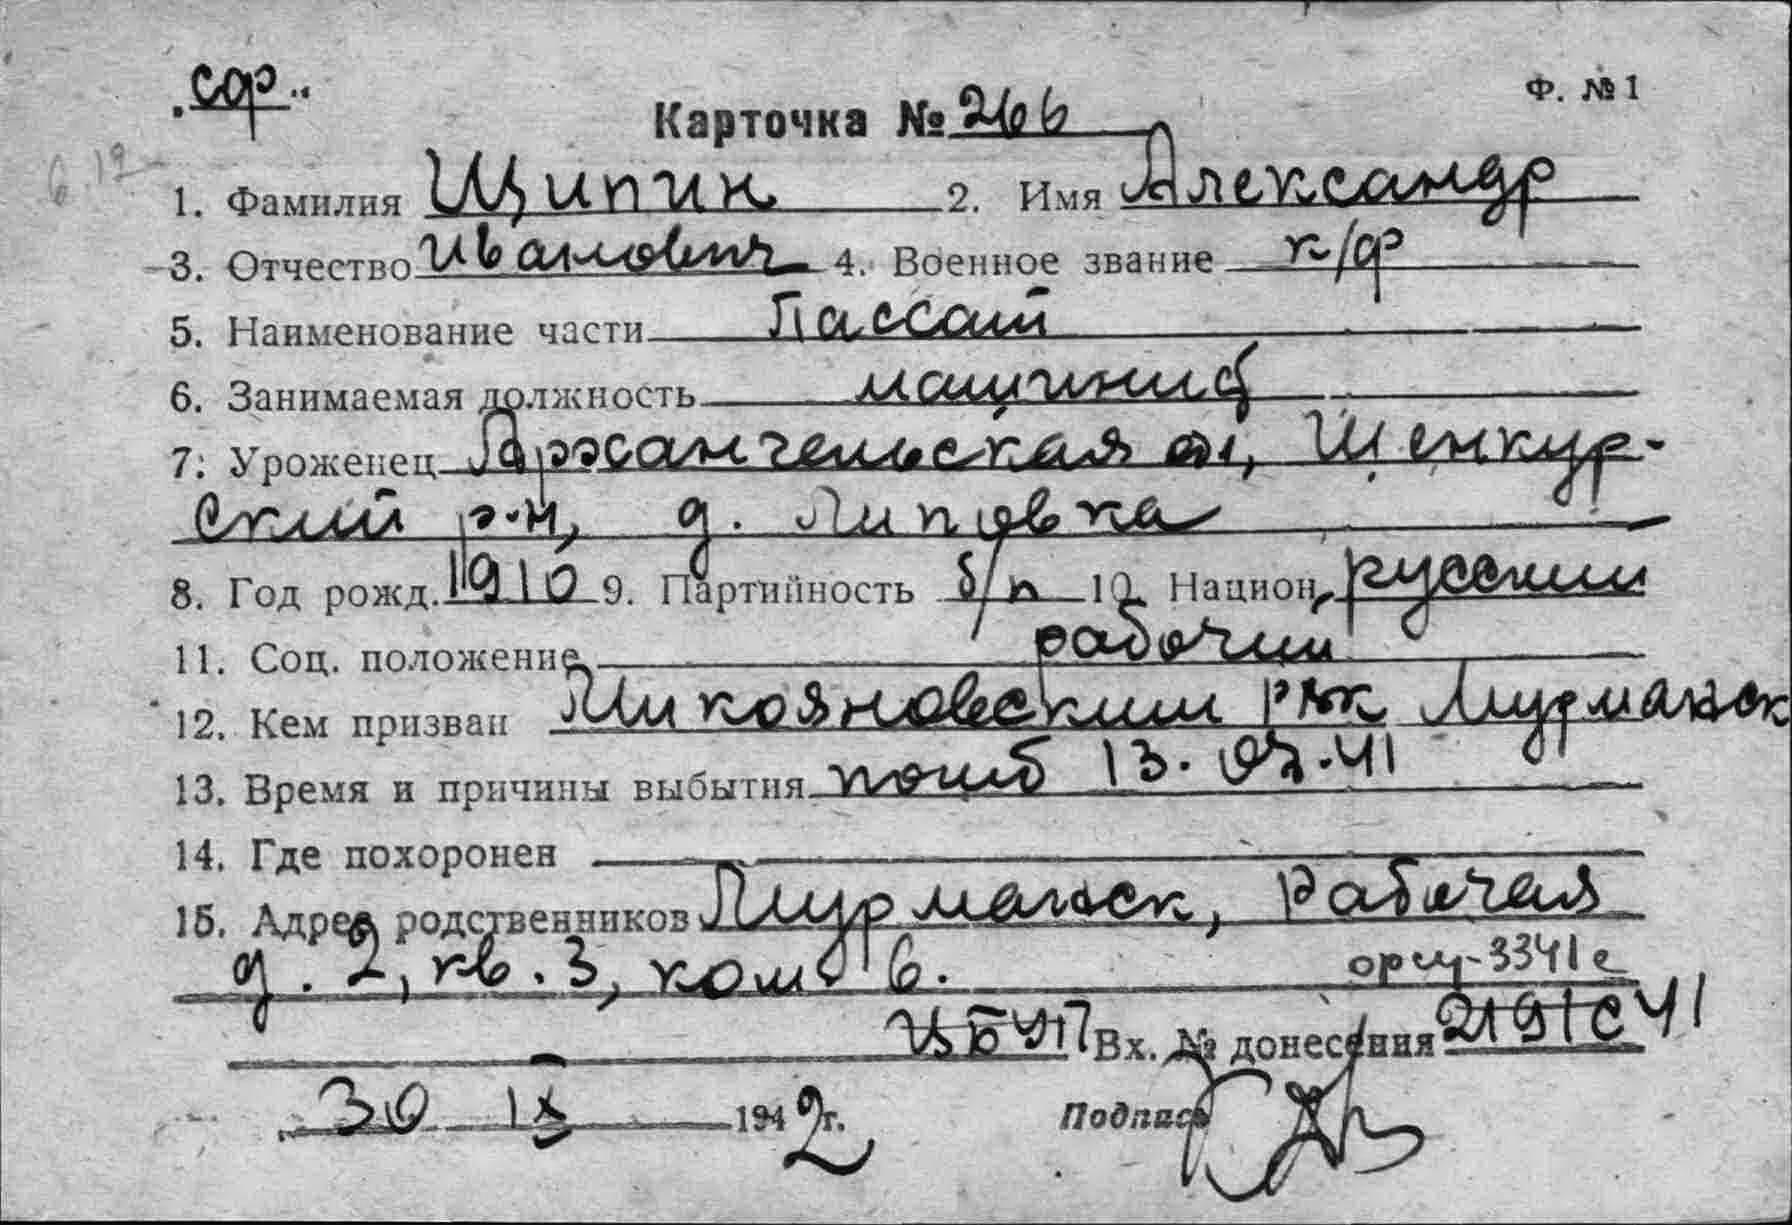 „сф“
Ф. №1
Карточка № 266
1. Фамилия Щипин 2. Имя Александр
3. Отчество Иванович 4. Военное звание к/ф
5. Наименование части Пассат
6. Занимаемая должность машинист
7. Уроженец Архангельская обл, Шенкур-
ский р-н, д. Липовка
8. Год рожд. 1910 9. Партийность б/п 10. Национ. русский
11. Соц. положение рабочий
12. Кем призван Микояновским РВК Мурманск
13. Время и причины выбытия погиб 13.07.41
14. Где похоронен
15. Адрес родственников Мурманск, Рабочая
д. 2, кв. 3, ком. 6.
3341с
Вх. № донесения 2191с 41
30 IX 1942г.
Подпись